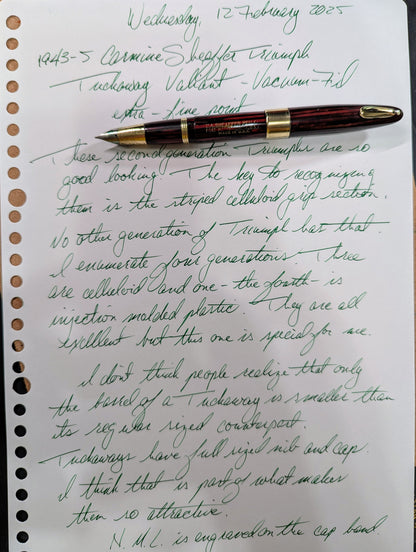 Wednesday, 12 February 2025
1943-5 Carmine Sheaffer Triumph
Tuckaway Valiant - Vacuum-Fil
extra-fine point
These second generation Triumphs are so
good looking. The key to recognizing
them is the striped celluloid grip section.
No other generation of Triumph has that.
I enumerate four generations. Three
are celluloid and one - the fourth - is
injection molded plastic. They are all
excellent but this one is special for me.
I don't think people realize that only
the barrel of a Tuckaway is smaller than
its regular sized counterpart.
Tuckaways have full sized nib and cap.
I think that is part of what makes
them so attractive.
N.M.L. is engraved on the cap band.